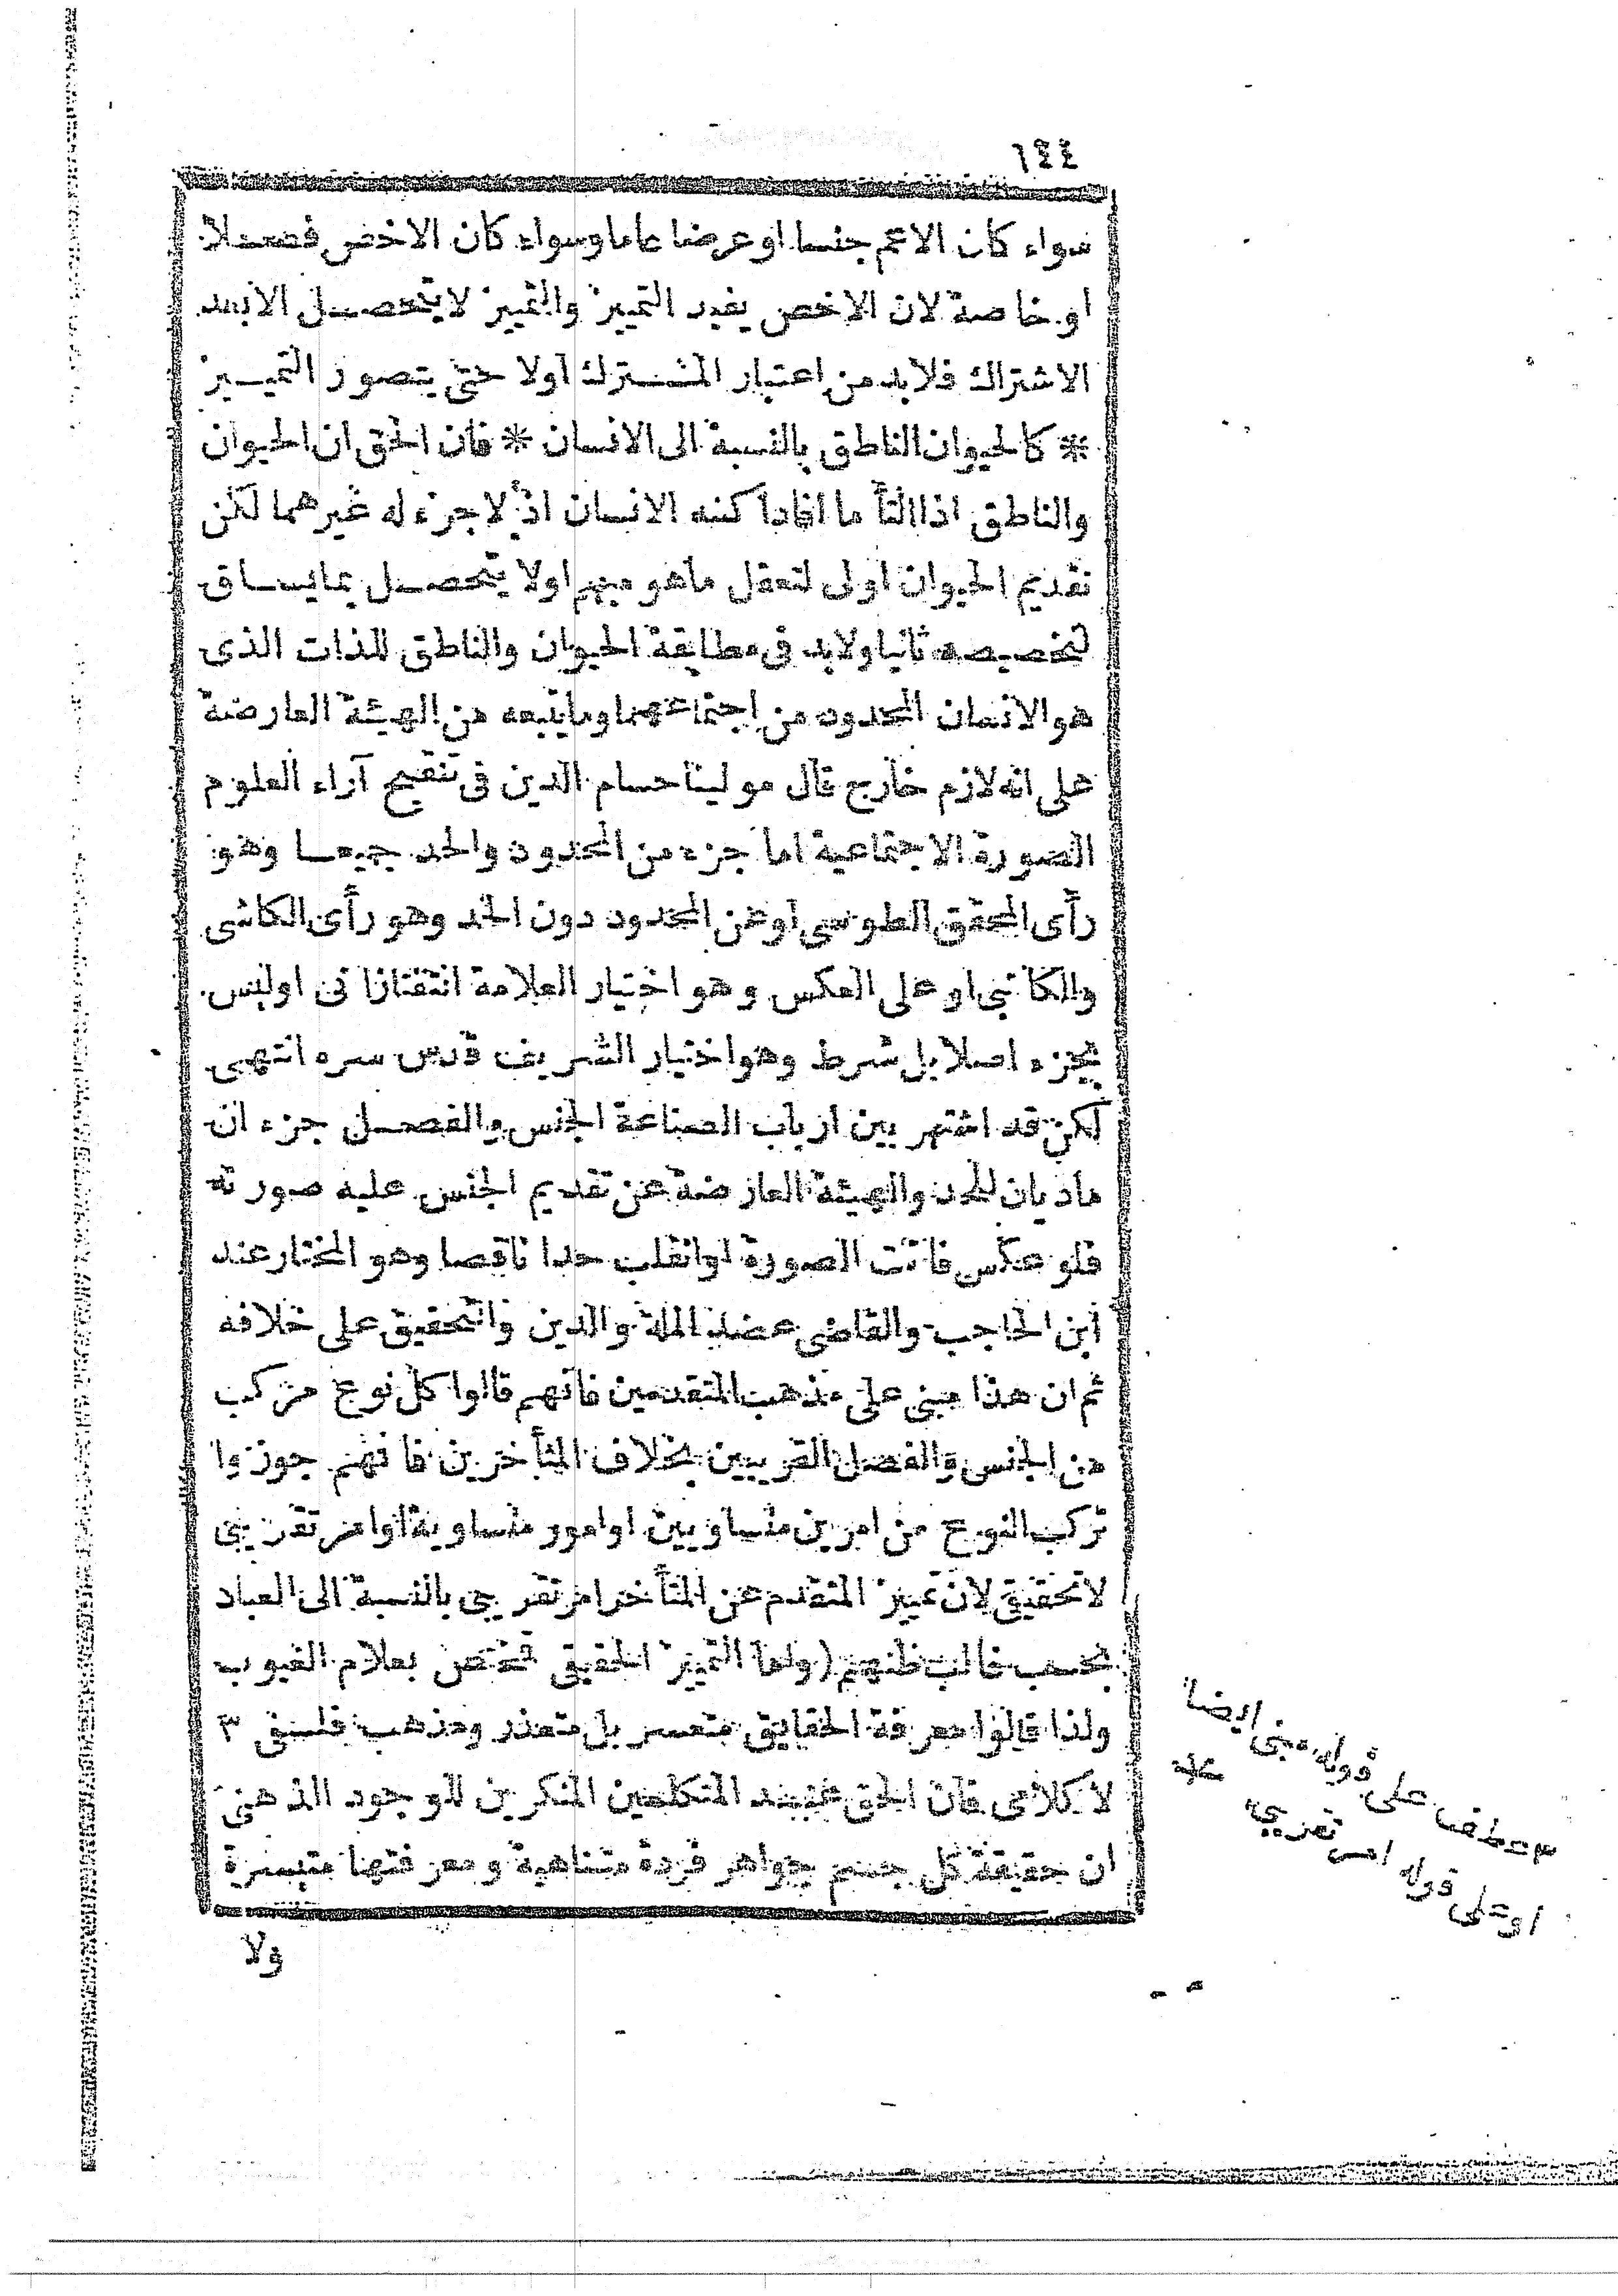 ١٤٤
سواء كان الاعم جنسا او عرضا عاما وسواء كان الاخص فصلا
او خاصة لان الاخص يفيد التمييز والتمييز لا يتحصل الا بعد
الاشتراك فلا بد من اعتبار المشترك اولا حتى يتصور التمييز
* كالحيوان الناطق بالنسبة الى الانسان * فان الحق ان الحيوان
والناطق اذا التأما افادا كنه الانسان اذ لا جزء له غيرهما لكن
تقديم الحيوان اولى لتعقل ما هو مبهم اولا يتحصل بما يساق
لتخصيصه ثانيا ولا بد فى مطابقة الحيوان والناطق للذات الذى
هو الانسان المحدود من اجتماعهما وما يتبعه من الهيئة العارضة
على انه لازم خارج قال مولينا حسام الدين فى تنقيح آراء العلوم
الصورة الاجتماعية اما جزء من المحدود والحد جميعا وهو
رأى المحقق الطوسى او من المحدود دون الحد وهو رأى الكاشى
والكاتبى او على العكس وهو اختيار العلامة التفتازانى او ليس
بجزء اصلا بل شرط وهو اختيار الشريف قدس سره انتهى
لكن قد اشتهر بين ارباب الصناعة الجنس والفصل جزء ان
ماديان للحد والهيئة العارضة عن تقديم الجنس عليه صورته
فلو عكس فاتت الصورة او انقلب حدا ناقصا وهو المختار عند
ابن الحاجب والقاضى عضد الملة والدين والتحقيق على خلافه
ثم ان هذا مبنى على مذهب المتقدمين فانهم قالوا كل نوع مركب
من الجنس والفصل القريبين بخلاف المتأخرين فانهم جوزوا
تركب النوع من امرين متساويين او امور متساوية او امر تقريبى
لا تحقيقى لان تمييز المتقدم عن المتأخر امر تقريبى بالنسبة الى العباد
بحسب غالب ظنهم (واما التمييز الحقيقى فمختص بعلام الغيوب
ولذا قالوا معرفة الحقايق متعسر بل متعذر ومذهب فلسفى ٣
لا كلامى فان الحق عند المتكلمين المنكرين للوجود الذهنى
ان حقيقة كل جسم جواهر فردة متناهية ومعرفتها متيسرة
ولا
٣ عطف على قوله مبنى ايضا
او على قوله امر تقريبى